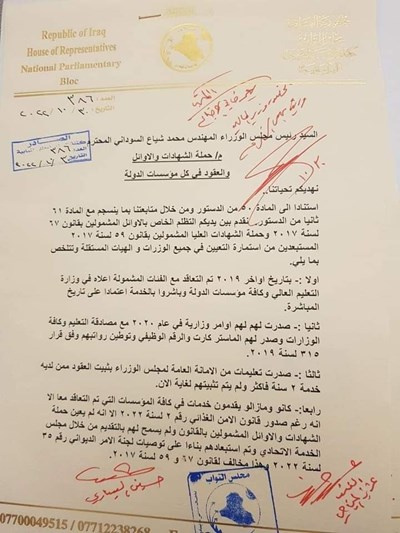 Republic of Iraq
House of Representatives
National Parliamentary
Bloc
العدد: ٣٨٦
التاريخ: ٢٠٢٢/١٠/٣٠
السيد رئيس مجلس الوزراء المهندس محمد شياع السوداني المحترم
م/ حملة الشهادات والاوائل
والعقود في كل مؤسسات الدولة
نهديكم تحياتنا..
استنادا الى المادة ٥٠ من الدستور ومن خلال متابعتنا بما ينسجم مع المادة ٦١
ثانيا من الدستور نقدم بين يديكم التظلم الخاص بالاوائل المشمولين بقانون ٦٧
لسنة ٢٠١٧ وحملة الشهادات العليا المشمولين بقانون ٥٩ لسنة ٢٠١٧
المستبعدين من استمارة التعيين في جميع الوزرات و الهيات المستقلة وتتلخص
بما يلي.
اولا :- بتاريخ اواخر ٢٠١٩ تم التعاقد مع الفئات المشمولة اعلاه في وزارة
التعليم العالي وكافة مؤسسات الدولة وباشروا بالخدمة اعتمادا على تاريخ
المباشرة.
ثانيا : صدرت لهم لهم اوامر وزارية في عام ٢٠٢٠ مع مصادقة التعليم وكافة
الوزارات وصدر لهم الماستر كارت والرقم الوظيفي وتوطين رواتبهم وفق قرار
٣١٥ لسنة ٢٠١٩.
ثالثا :- صدرت تعليمات من الامانة العامة لمجلس الوزراء بثبيت العقود ممن لديه
خدمة ٢ سنة فاكثر ولم يتم تثبيتهم لغاية الان.
رابعا:- كانو ومازالو يقدمون خدمات في كافة المؤسسات التي تم التعاقد معا الا
انه رغم صدور قانون الامن الغذائي رقم ٢ لسنة ٢٠٢٢ الا انه لم يعين حملة
الشهادات والاوائل المشمولين بالقانون ولم يسمح لهم بالتقديم من خلال مجلس
الخدمة الاتحادي وتم استبعادهم بناءا على توصيات لجنة الامر الديواني رقم ٣٥
لسنة ٢٠٢٢ وبهذا مخالف لقانون ٦٧ و ٥٩ لسنة ٢٠١٧.
مجلس النواب
07700049515 / 07712238268